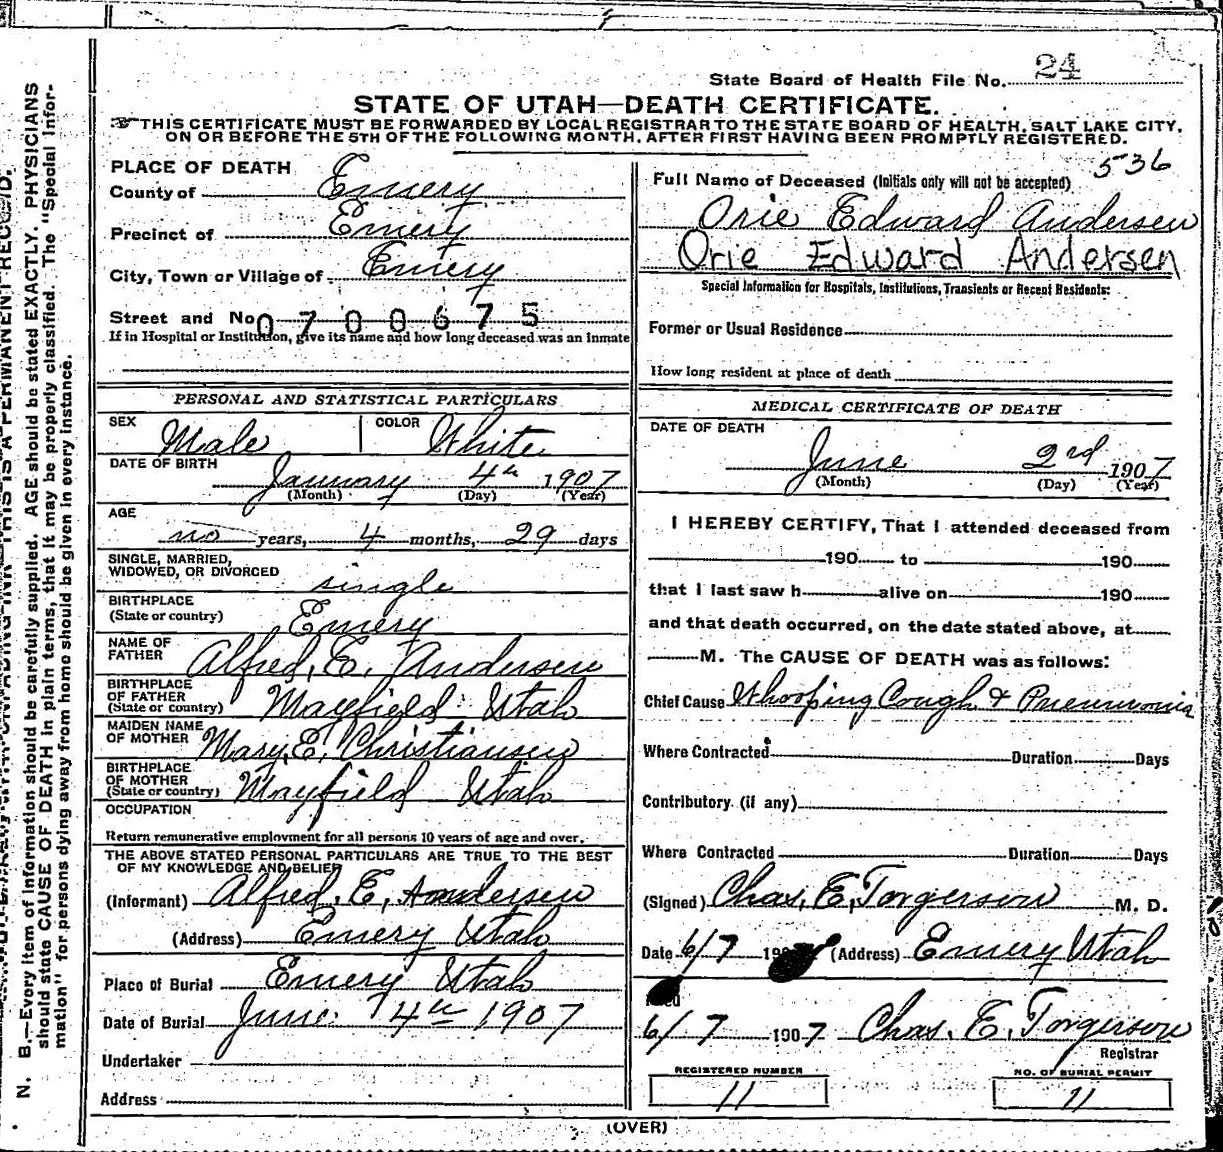 State Board of Health File No. 24
STATE OF UTAH—DEATH CERTIFICATE.
THIS CERTIFICATE MUST BE FORWARDED BY LOCAL REGISTRAR TO THE STATE BOARD OF HEALTH, SALT LAKE CITY,
ON OR BEFORE THE 5TH OF THE FOLLOWING MONTH, AFTER FIRST HAVING BEEN PROMPTLY REGISTERED.
PLACE OF DEATH
County of Emery
Precinct of Emery
City, Town or Village of Emery
Street and No 0700675
If in Hospital or Institution, give its name and how long deceased was an inmate
PERSONAL AND STATISTICAL PARTICULARS
SEX Male COLOR White
DATE OF BIRTH January 4th 1907
(Month) (Day) (Year)
AGE no years, 4 months, 29 days
SINGLE, MARRIED,
WIDOWED, OR DIVORCED single
BIRTHPLACE
(State or country) Emery
NAME OF
FATHER Alfred, E. Andersen
BIRTHPLACE
OF FATHER
(State or country) Mayfield Utah
MAIDEN NAME
OF MOTHER Mary, E. Christiansen
BIRTHPLACE
OF MOTHER
(State or country) Mayfield Utah
OCCUPATION
Return remunerative employment for all persons 10 years of age and over.
THE ABOVE STATED PERSONAL PARTICULARS ARE TRUE TO THE BEST
OF MY KNOWLEDGE AND BELIEF
(Informant) Alfred, E, Andersen
(Address) Emery Utah
Place of Burial Emery Utah
Date of Burial June 4th 1907
Undertaker
Address
536
Full Name of Deceased (Initials only will not be accepted)
Orie Edward Andersen
Orie Edward Andersen
Special Information for Hospitals, Institutions, Transients or Recent Residents:
Former or Usual Residence
How long resident at place of death
MEDICAL CERTIFICATE OF DEATH
DATE OF DEATH
June 2rd 1907
(Month) (Day) (Year)
I HEREBY CERTIFY, That I attended deceased from
190 to 190
that I last saw h alive on 190
and that death occurred, on the date stated above, at
M. The CAUSE OF DEATH was as follows:
Chief Cause Whooping Cough & Pneumonia
Where Contracted Duration Days
Contributory (if any)
Where Contracted Duration Days
(Signed) Chas, E, Torgerson M. D.
Date 6/7 190 (Address) Emery Utah
6/7 1907 Chas. E. Torgerson
Registrar
REGISTERED NUMBER
11
NO. OF BURIAL PERMIT
11
(OVER)
N. B.—Every item of information should be carefully supplied. AGE should be stated EXACTLY. PHYSICIANS
should state CAUSE OF DEATH in plain terms, that it may be properly classified. The "Special Infor-
mation" for persons dying away from home should be given in every instance.